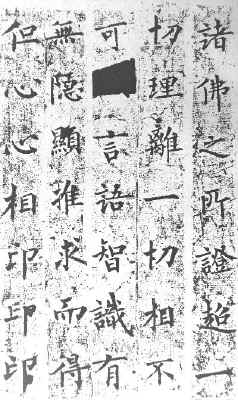 諸佛之所證超一
切理離一切相不
可言語智識有
無隱顯推求而得
但心心相印印印